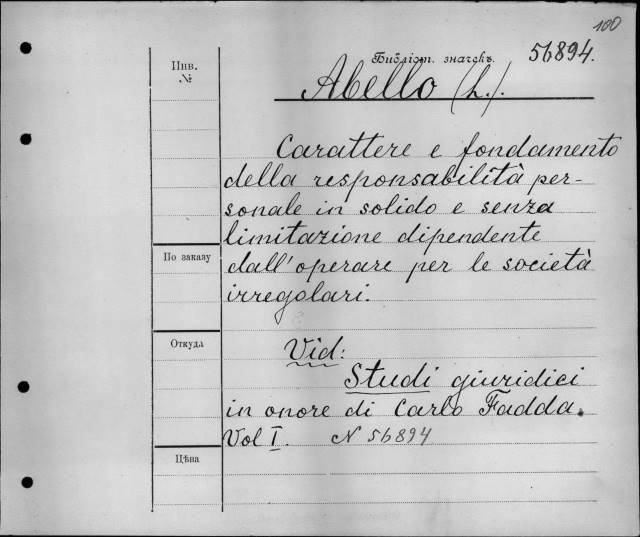 100
Инв.
№
Библіот. значекъ. 56894.
Abello (L.).
Carattere e fondamento
della responsabilità per-
sonale in solido e senza
limitazione dipendente
По заказу
dall'operare per le società
irregolari.
Откуда
Vid:
Studi giuridici
in onore di Carlo Fadda.
Vol I. N 56894
Цѣна